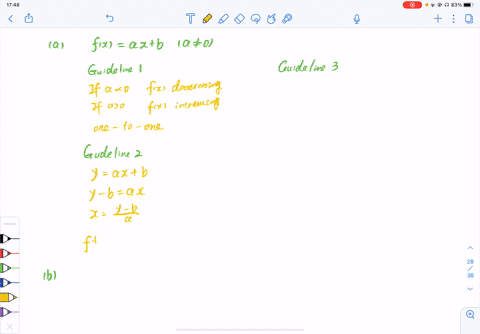 17:48
83%
(a) f(x) = ax+b (a≠0)
Guideline 1
If a<0 f(x) decreasing
If a>0 f(x) increasing
one-to-one
Guideline 2
y = ax+b
y-b = ax
x = \frac{y-b}{a}
f-1
Guideline 3
(b)
28
/
36